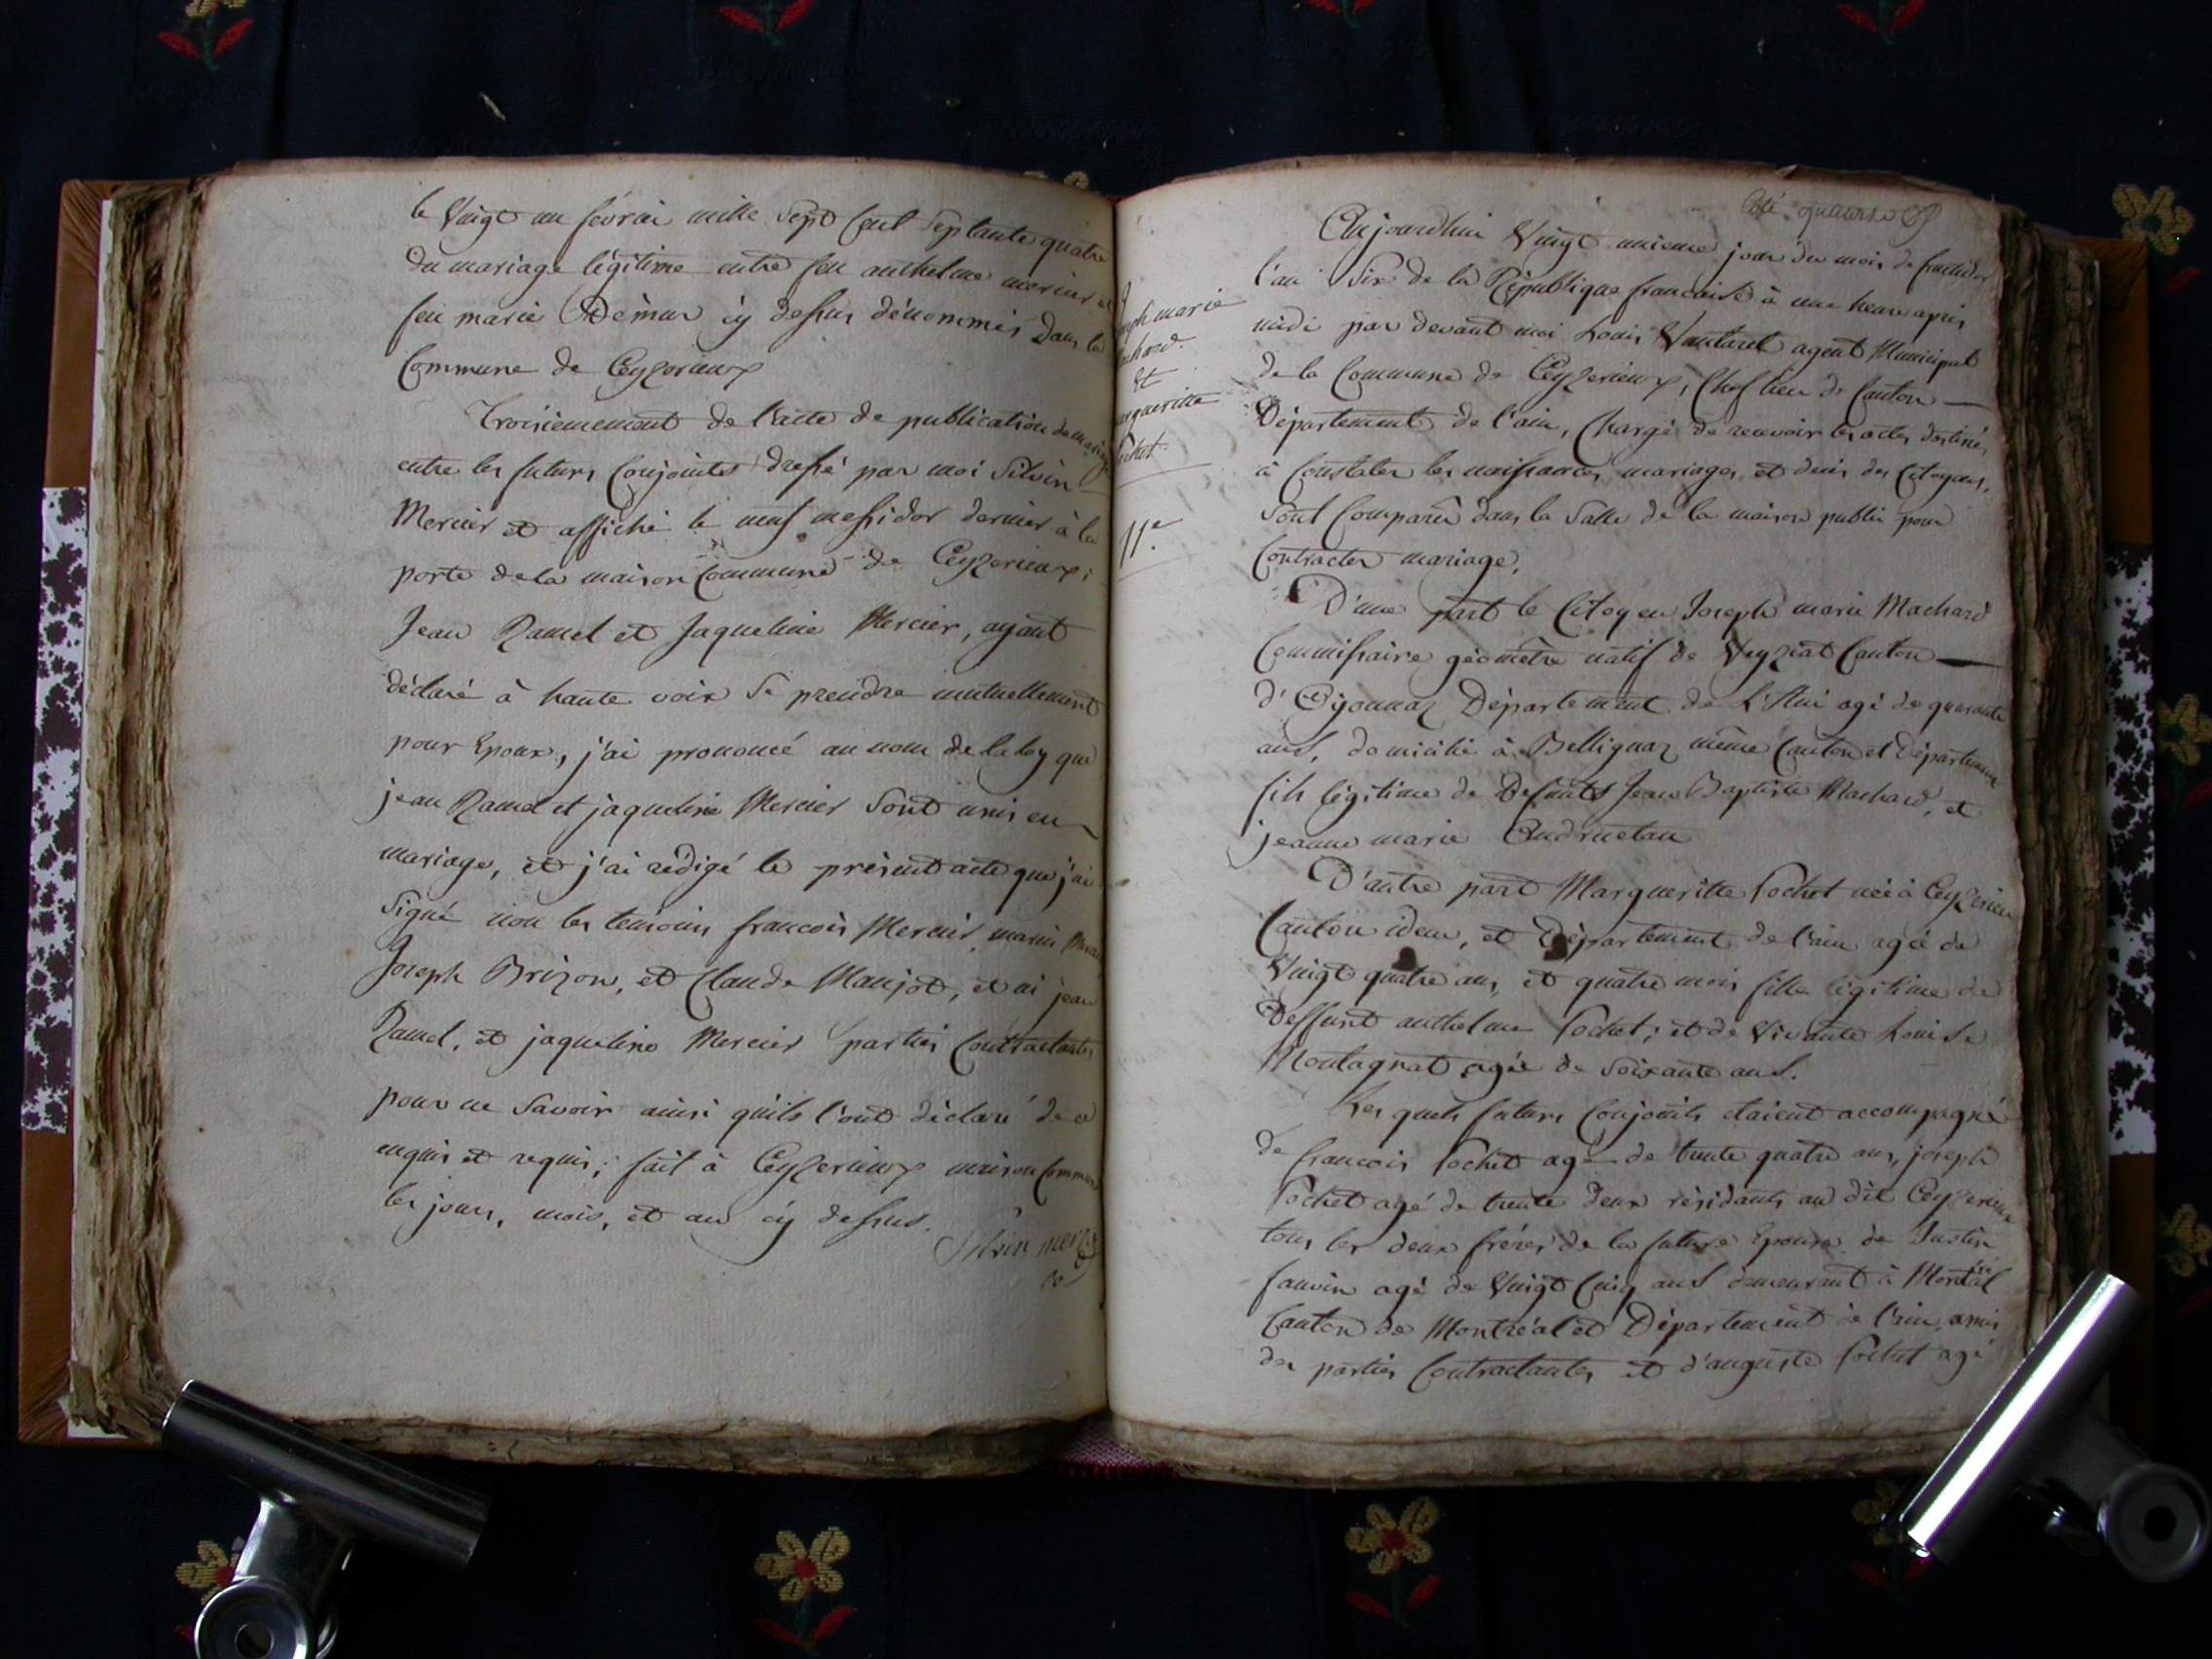 le Vingt un février mille Sept Cent Septante quatre
du mariage légitime entre feu anthelme mercier et
feu marie Démur cy dessus dénommés Dans la
Commune de Ceyzerieux
Troisiemement de l'acte de publication de mariage
entre les futurs Conjoints dressé par moi Silvin
Mercier et affiché le neuf messidor dernier à la
porte de la maison Commune de Ceyzerieux;
Jean Ramel et Jaqueline Mercier, ayant
déclaré à haute voix Se prendre mutuellement
pour Epoux, j'ai prononcé au nom de la loy que
jean Ramel et jaqueline Mercier Sont unis en
mariage, et j'ai rédigé le présent acte que j'ai
Signé non les temoins francois Mercier, marin
Joseph Brizon, et Claude Manjot, et ai jean
Ramel, et jaqueline Mercier parties Contractantes
pour ne Savoir ainsi qu'ils l'ont déclaré de ce
enquis et requis; fait à Ceyzerieux maison Commune
les jours, mois, et an cy dessus.
Silvin mercier
quatorze
joseph marie
Machard
Et
Margueritte
Pochet
11.e
Aujourdhui Vingt unieme jour du mois de fructidor
l'an Six de la République francaise à une heure après
midi par devant moi Louis Vautaret agent Municipal
de la Commune de Ceyzerieux, Chef lieu de Canton
Département de l'ain, Chargé de recevoir les actes destinés
à Constater les naissances, mariages, et décès des Citoyens,
Sont Comparû dans la Salle de la maison public pour
Contracter mariage,
D'une part le Citoyen Joseph marie Machard
Commissaire géomètre natif de Veyziat Canton
d'Oyonnaz Département de L'Ain agé de quarante
ans, domicilié à Bellignaz même Canton et Département
fils légitime de Defunts Jean Baptiste Machard, et
jeanne marie Andruetan
D'autre part Margueritte Pochet née à Ceyzerieu
Canton idem, et Département de l'ain agée de
Vingt quatre ans, et quatre mois fille légitime de
Deffunt anthelme Pochet; et de Vivante Louise
Montagnat agée de Soixante ans.
Les quels futurs Conjoints etaient accompagné
de francois Pochet agé de trente quatre ans, joseph
Pochet agé de trente deux résidants au dit Ceyzerieux
tous les deux frères de la future Epouse de Justin
fauvin agé de Vingt Cinq ans demeurant à Montréal
Canton de Montréal et Département de l'ain, amis
des parties Contractantes et d'auguste Pochet agé